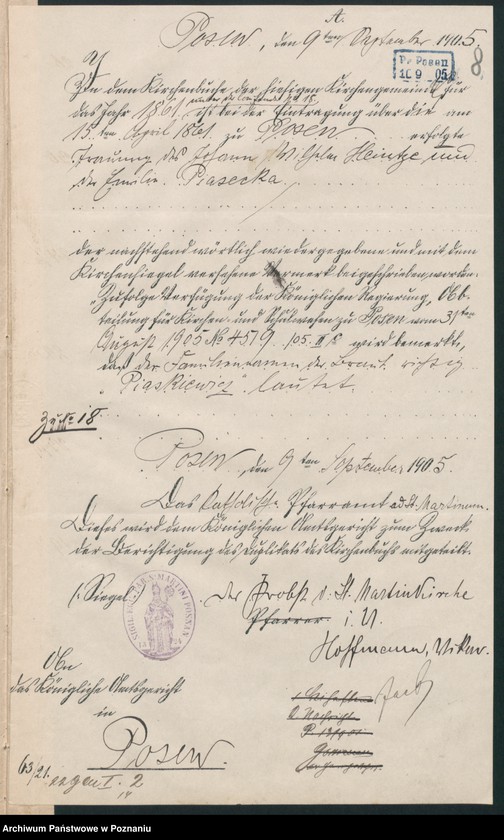 A.
Posen, den 9ten September 1905.
Pr. Posen
10 9 05
8
In dem Kirchenbuche der hiesigen Kirchengemeinde für
das Jahr 1861 unter der laufenden № 18 ist bei der Eintragung über die am
15ten April 1861 zu Posen erfolgte
Trauung des Johann Wilhelm Heintze und
der Emilie Piasecka
der nachstehend wörtlich wiedergegebene und mit dem
Kirchensiegel versehene Vermerk beigeschrieben worden:
„Zufolge Verfügung der Königlichen Regierung, Ab-
teilung für Kirchen- und Schulwesen zu Posen vom 31ten
August 1905 № 4579 /05. II wird bemerkt,
daß der Familiennamen der Braut richtig
„Piaskiewicz“ lautet.
Zu № 18
Posen, den 9ten September 1905.
Das Katholische Pfarramt ad St. Martinum.
Dieses wird dem Königlichen Amtsgericht zum Zweck
der Berichtigung des Duplikats des Kirchenbuchs mitgeteilt.
(Siegel)
SIGIL. ECCL. PAR. S. MARTINI POSNAN
Der Probst d. St. Martinkirche
Pfarrer i. V.
Hoffmann, Vikar.
An
das Königliche Amtsgericht
in
Posen.
63/21. I. 2
Archiwum Państwowe w Poznaniu